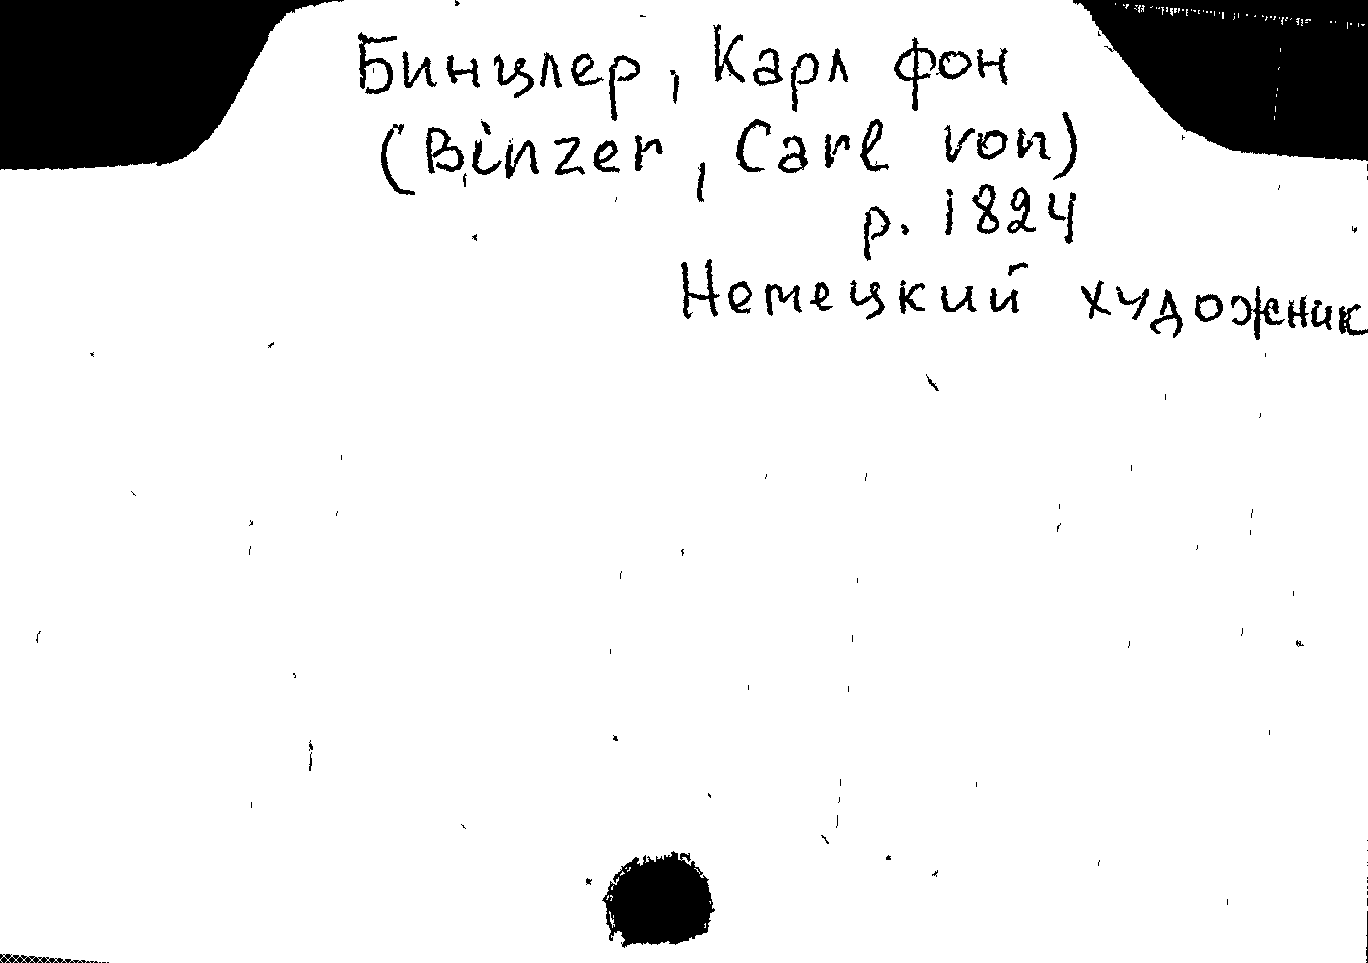 Бинцлер, Карл фон
(Binzer, Carl von)
р. 1824
Немецкий художник